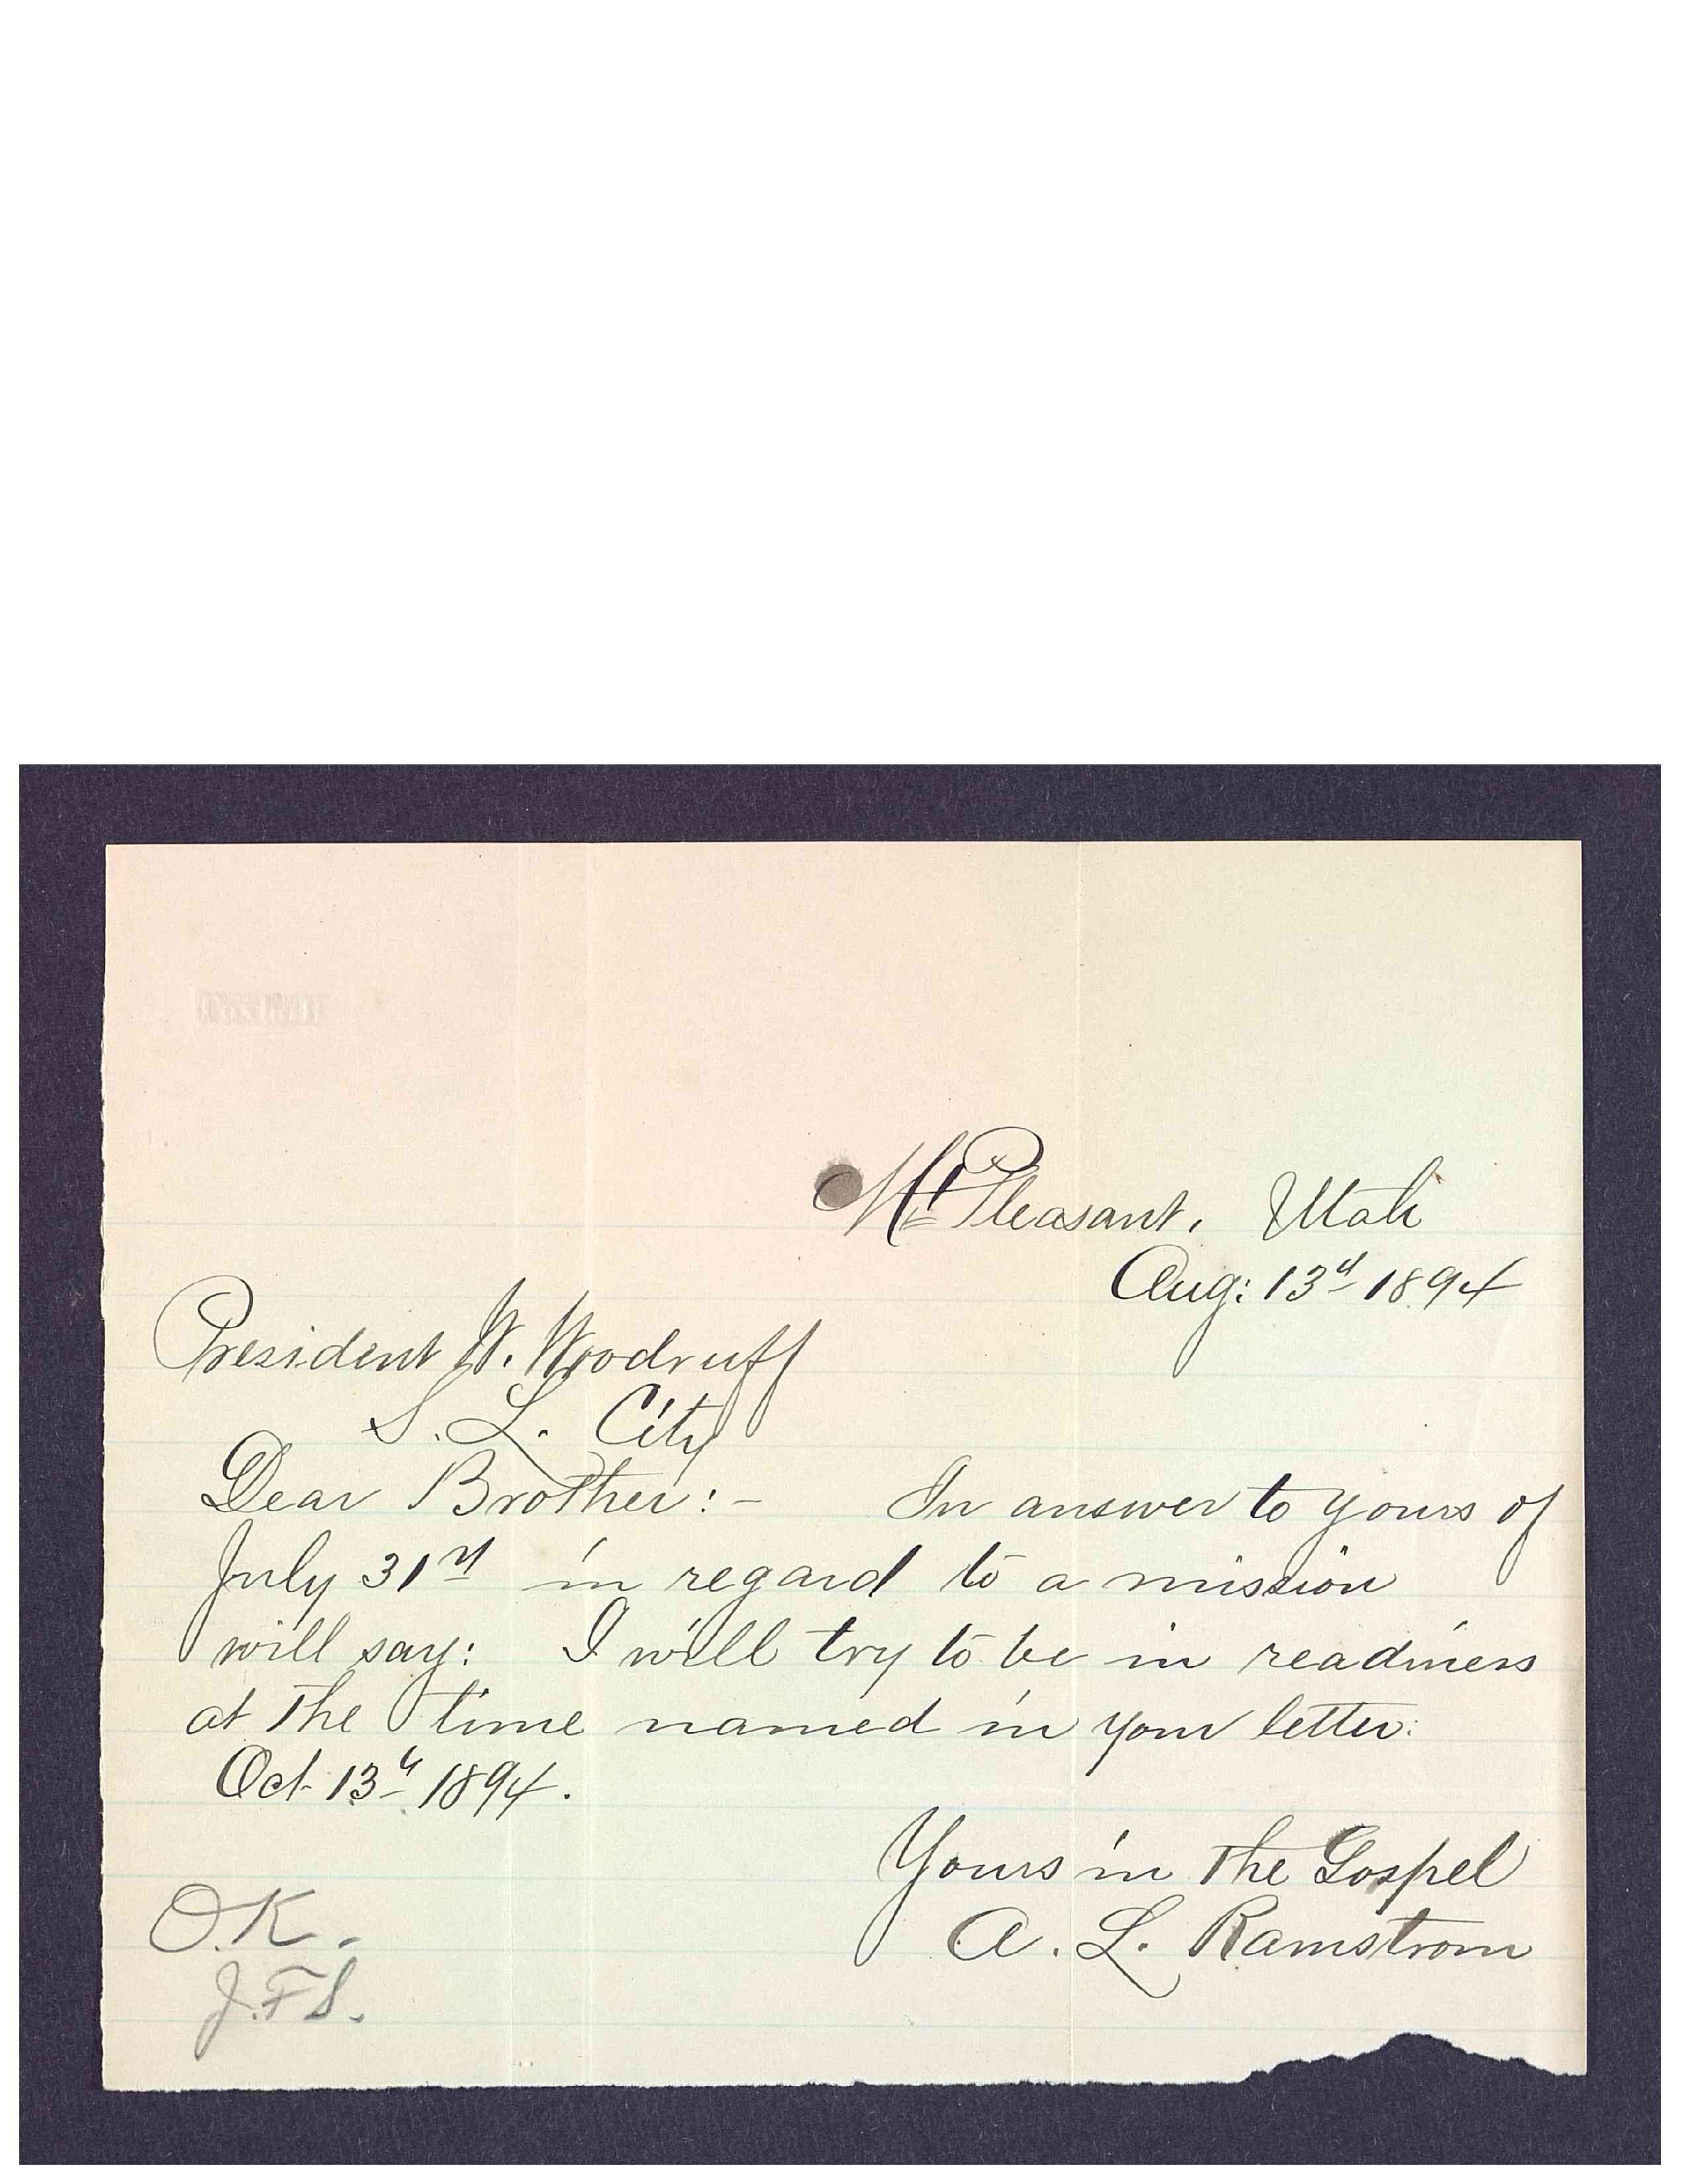 Mt Pleasant, Utah
Aug: 13th 1894
President W. Woodruff
S. L. City
Dear Brother:- In answer to yours of
July 31st in regard to a mission
will say: I will try to be in readiness
at the time named in your letter:
Oct 13th 1894.
Yours in the Gospel
A. L. Ramstrom
O.K.
J.F.S.